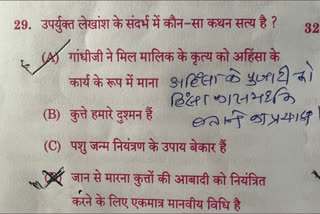 29. उपर्युक्त लेखांश के संदर्भ में कौन-सा कथन सत्य है ?
32
(A) गांधीजी ने मिल मालिक के कृत्य को अहिंसा के
कार्य के रूप में माना
अहिंसा के पुजारी को
हिंसा का समर्थक
बनाने का प्रयास
(B) कुत्ते हमारे दुश्मन हैं
(C) पशु जन्म नियंत्रण के उपाय बेकार हैं
जान से मारना कुत्तों की आबादी को नियंत्रित
करने के लिए एकमात्र मानवीय विधि है